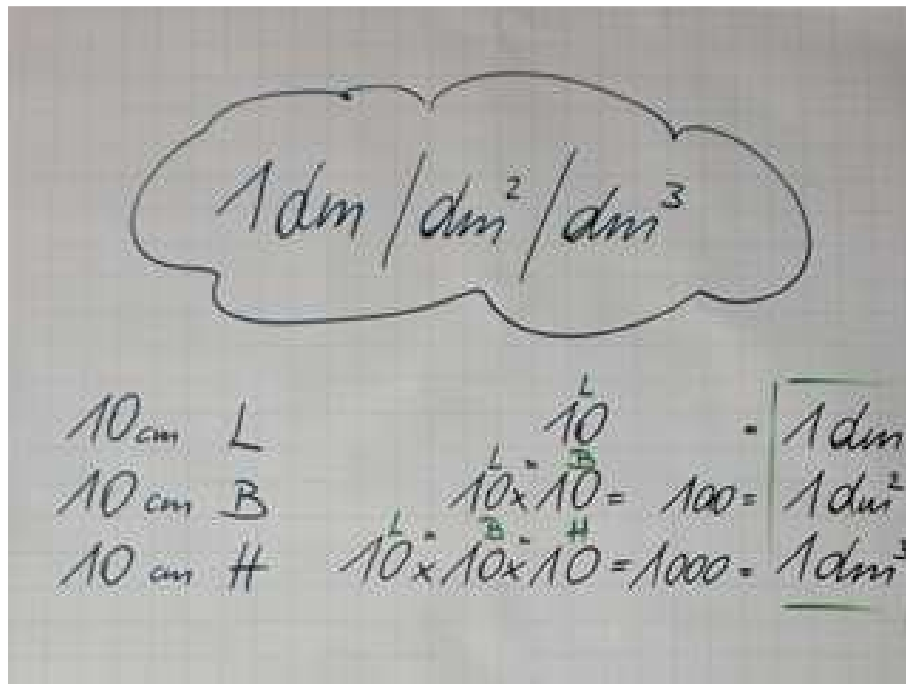 1 dm / dm² / dm³
10 cm L
10 cm B
10 cm H
L
10 = 1 dm
L · B
10 x 10 = 100 = 1 dm²
L · B · H
10 x 10 x 10 = 1000 = 1 dm³